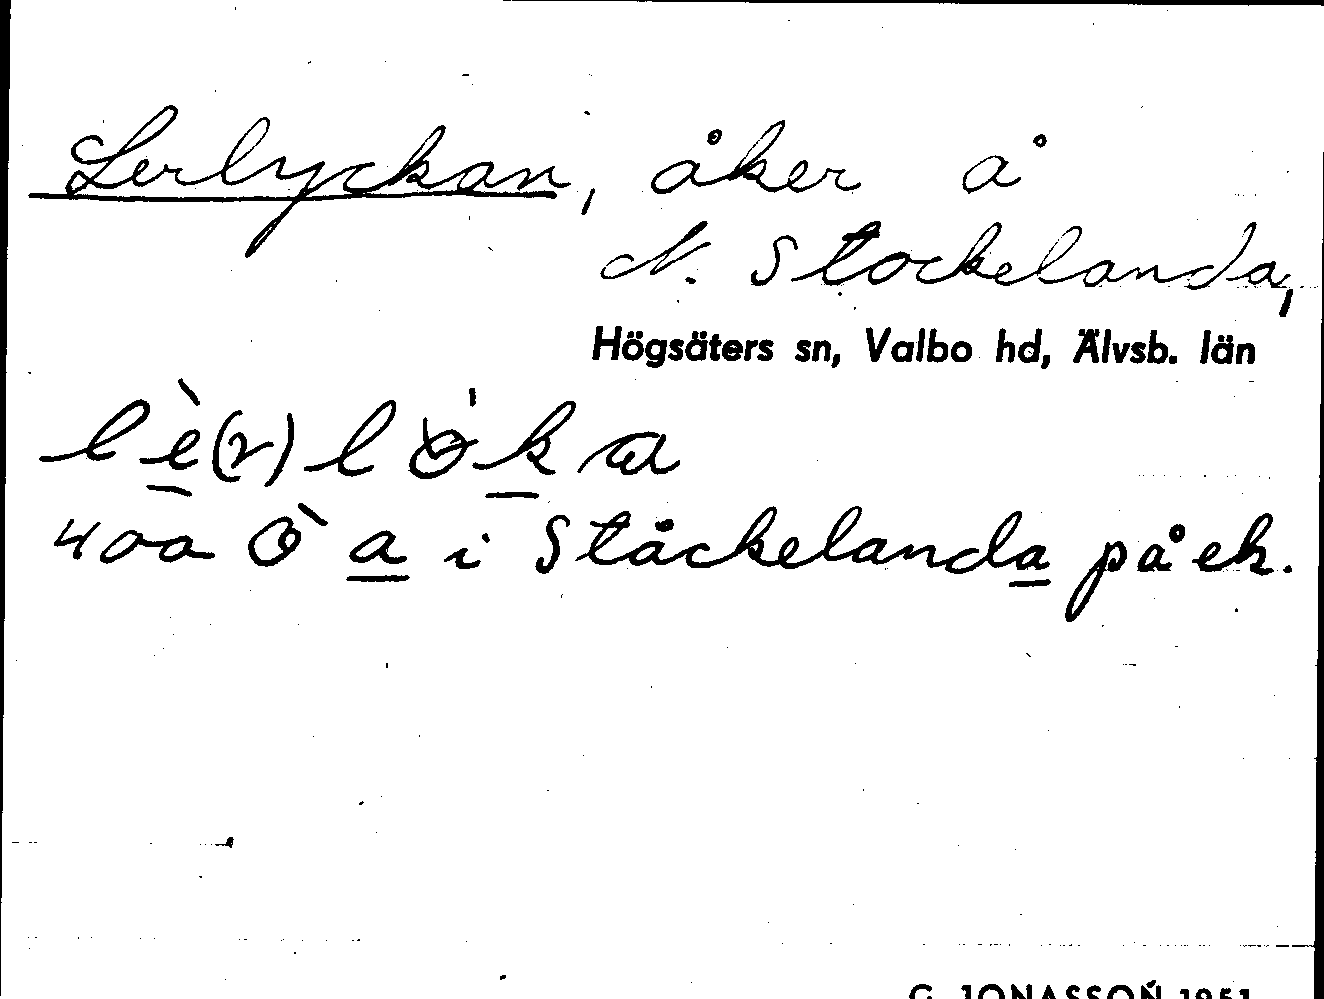 Lerlyckan, åker å
N. Stockelanda,
Högsäters sn, Valbo hd, Älvsb. län
lè(r)løka
400 Ö a i Ståckelanda på ek.
G. JONASSON 1951